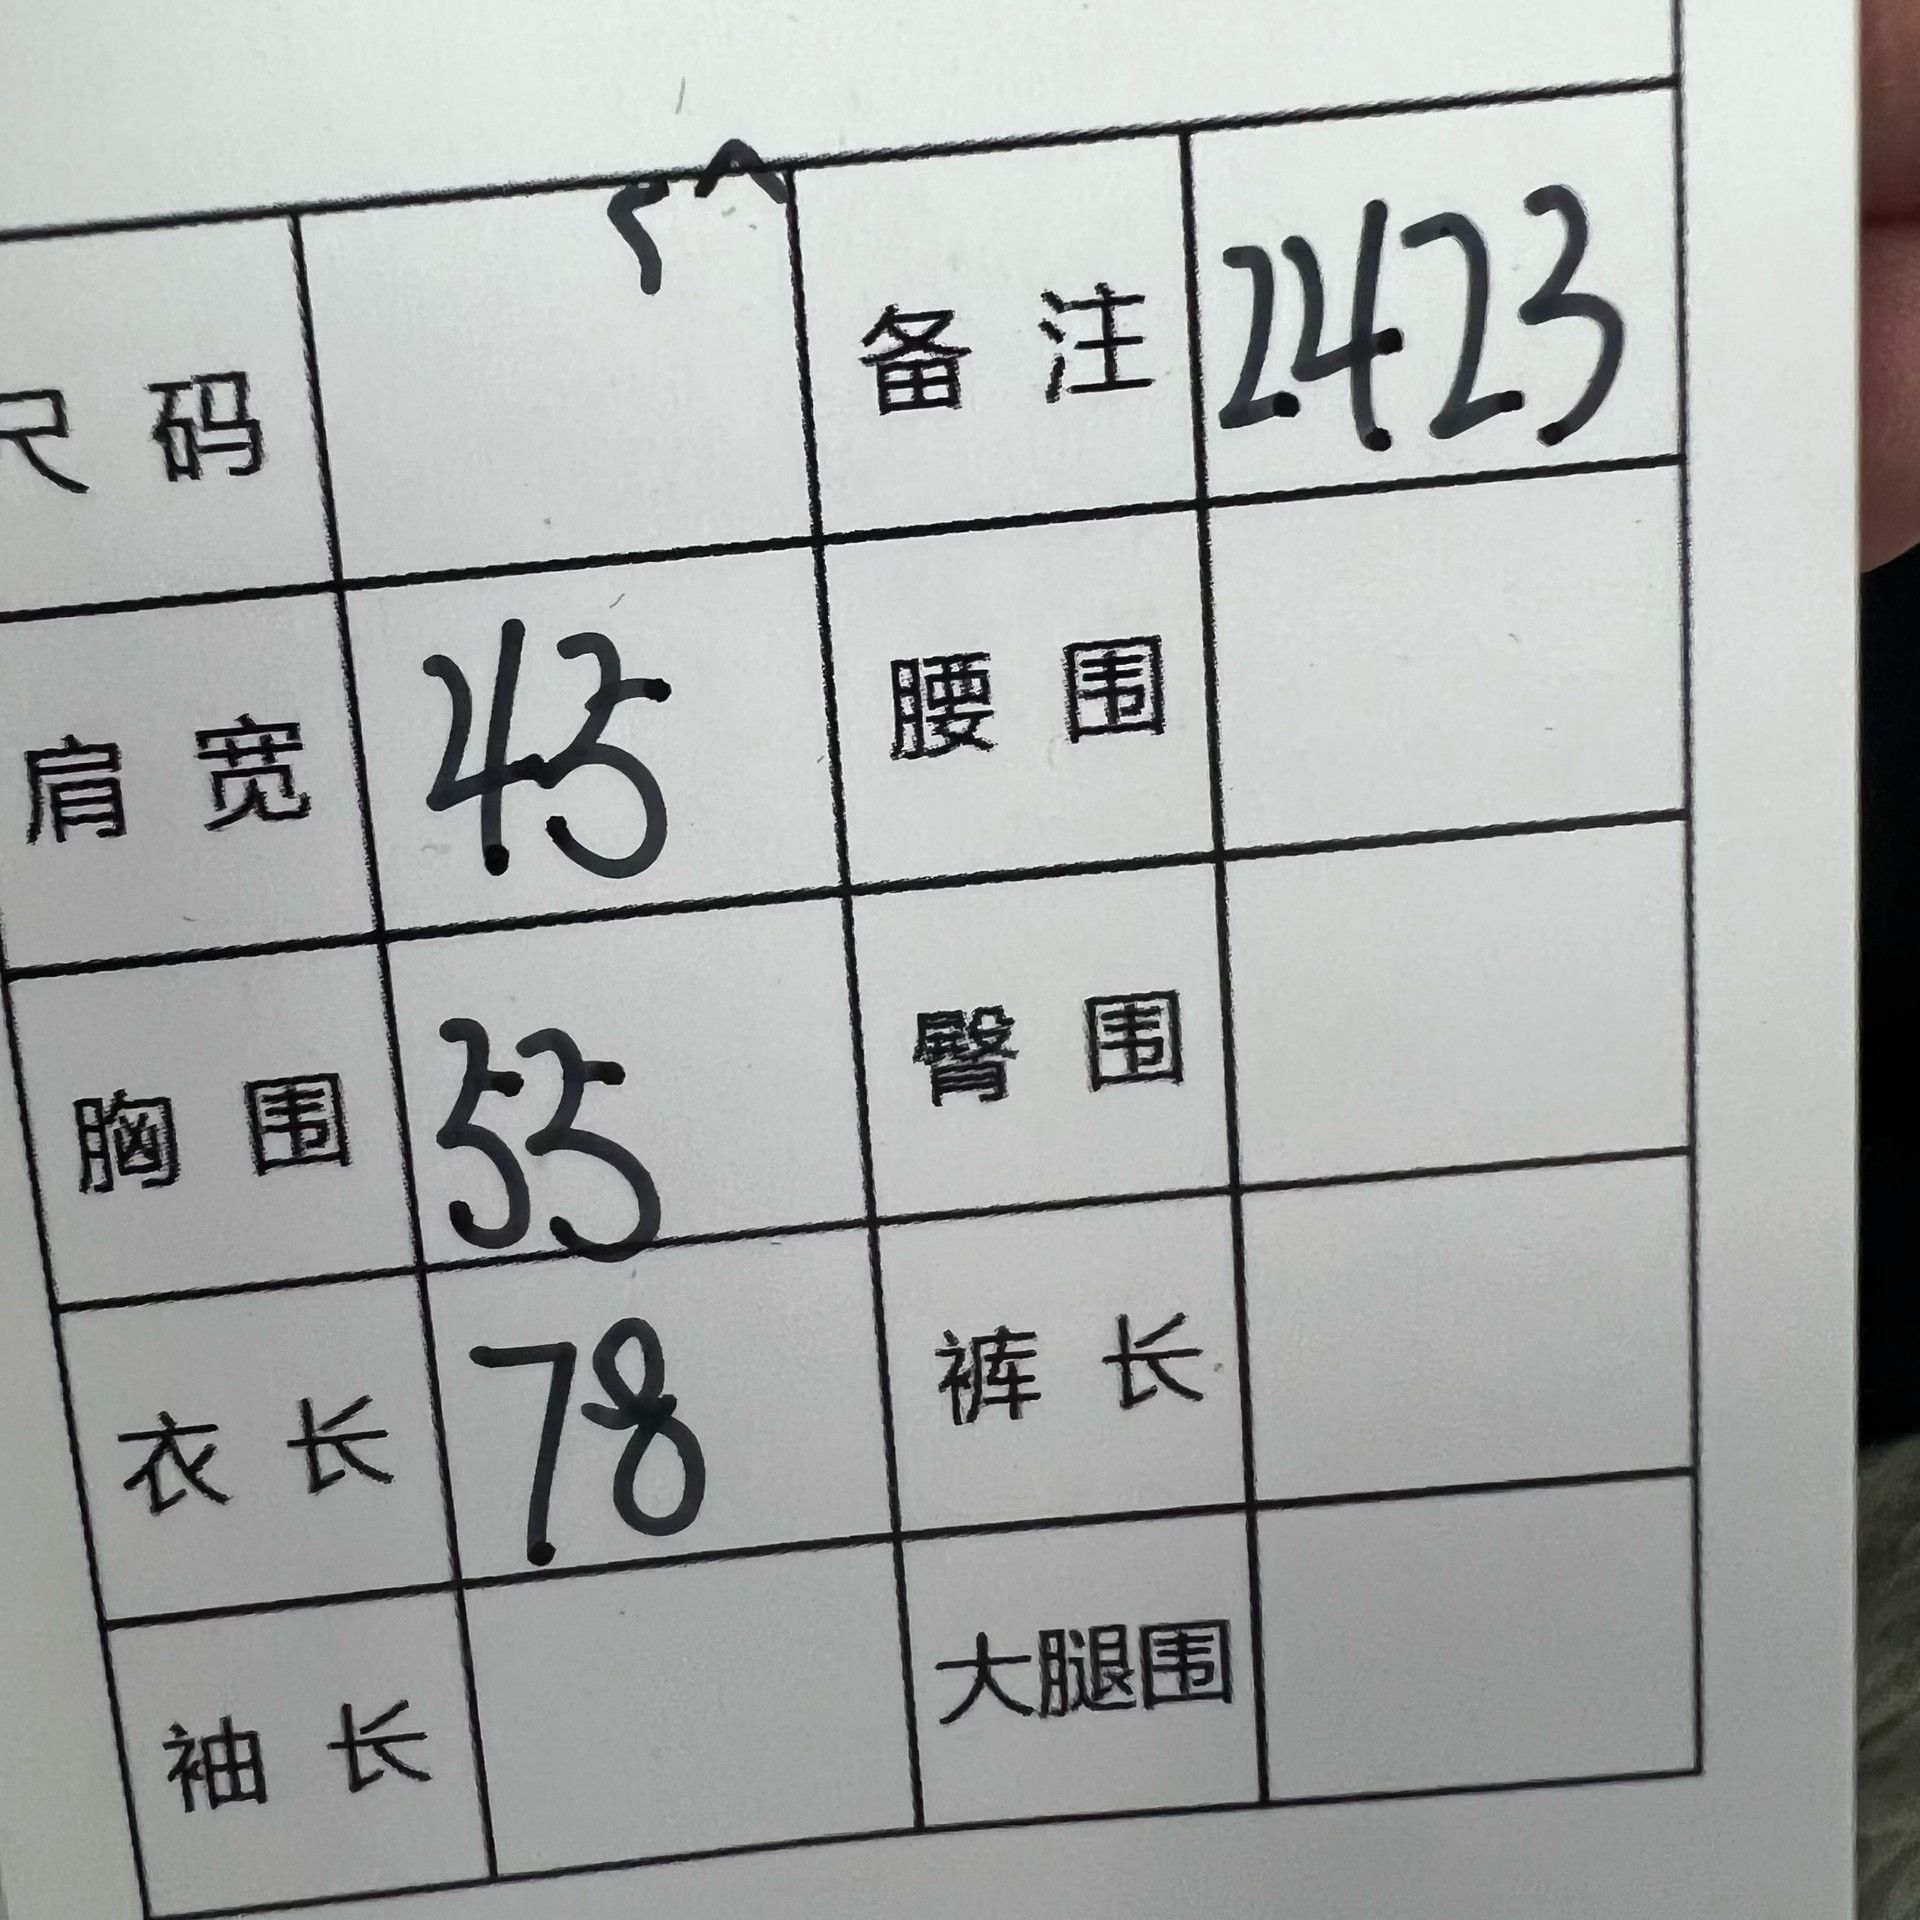 尺 码 备 注 2423
肩 宽 45 腰 围
胸 围 55 臀 围
衣 长 78 裤 长
袖 长 大腿围